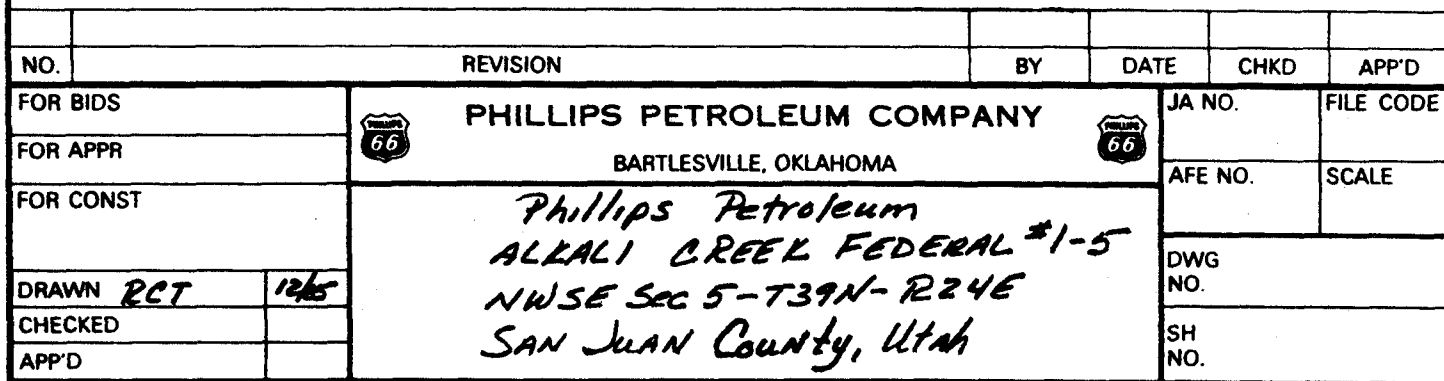 NO. REVISION BY DATE CHKD APP'D
FOR BIDS
FOR APPR
FOR CONST
DRAWN RCT 12/85
CHECKED
APP'D
PHILLIPS 66
PHILLIPS PETROLEUM COMPANY
BARTLESVILLE, OKLAHOMA
PHILLIPS 66
Phillips Petroleum
ALKALI CREEK FEDERAL #1-5
NWSE Sec 5-T39N-R24E
SAN JUAN County, Utah
JA NO. FILE CODE
AFE NO. SCALE
DWG
NO.
SH
NO.